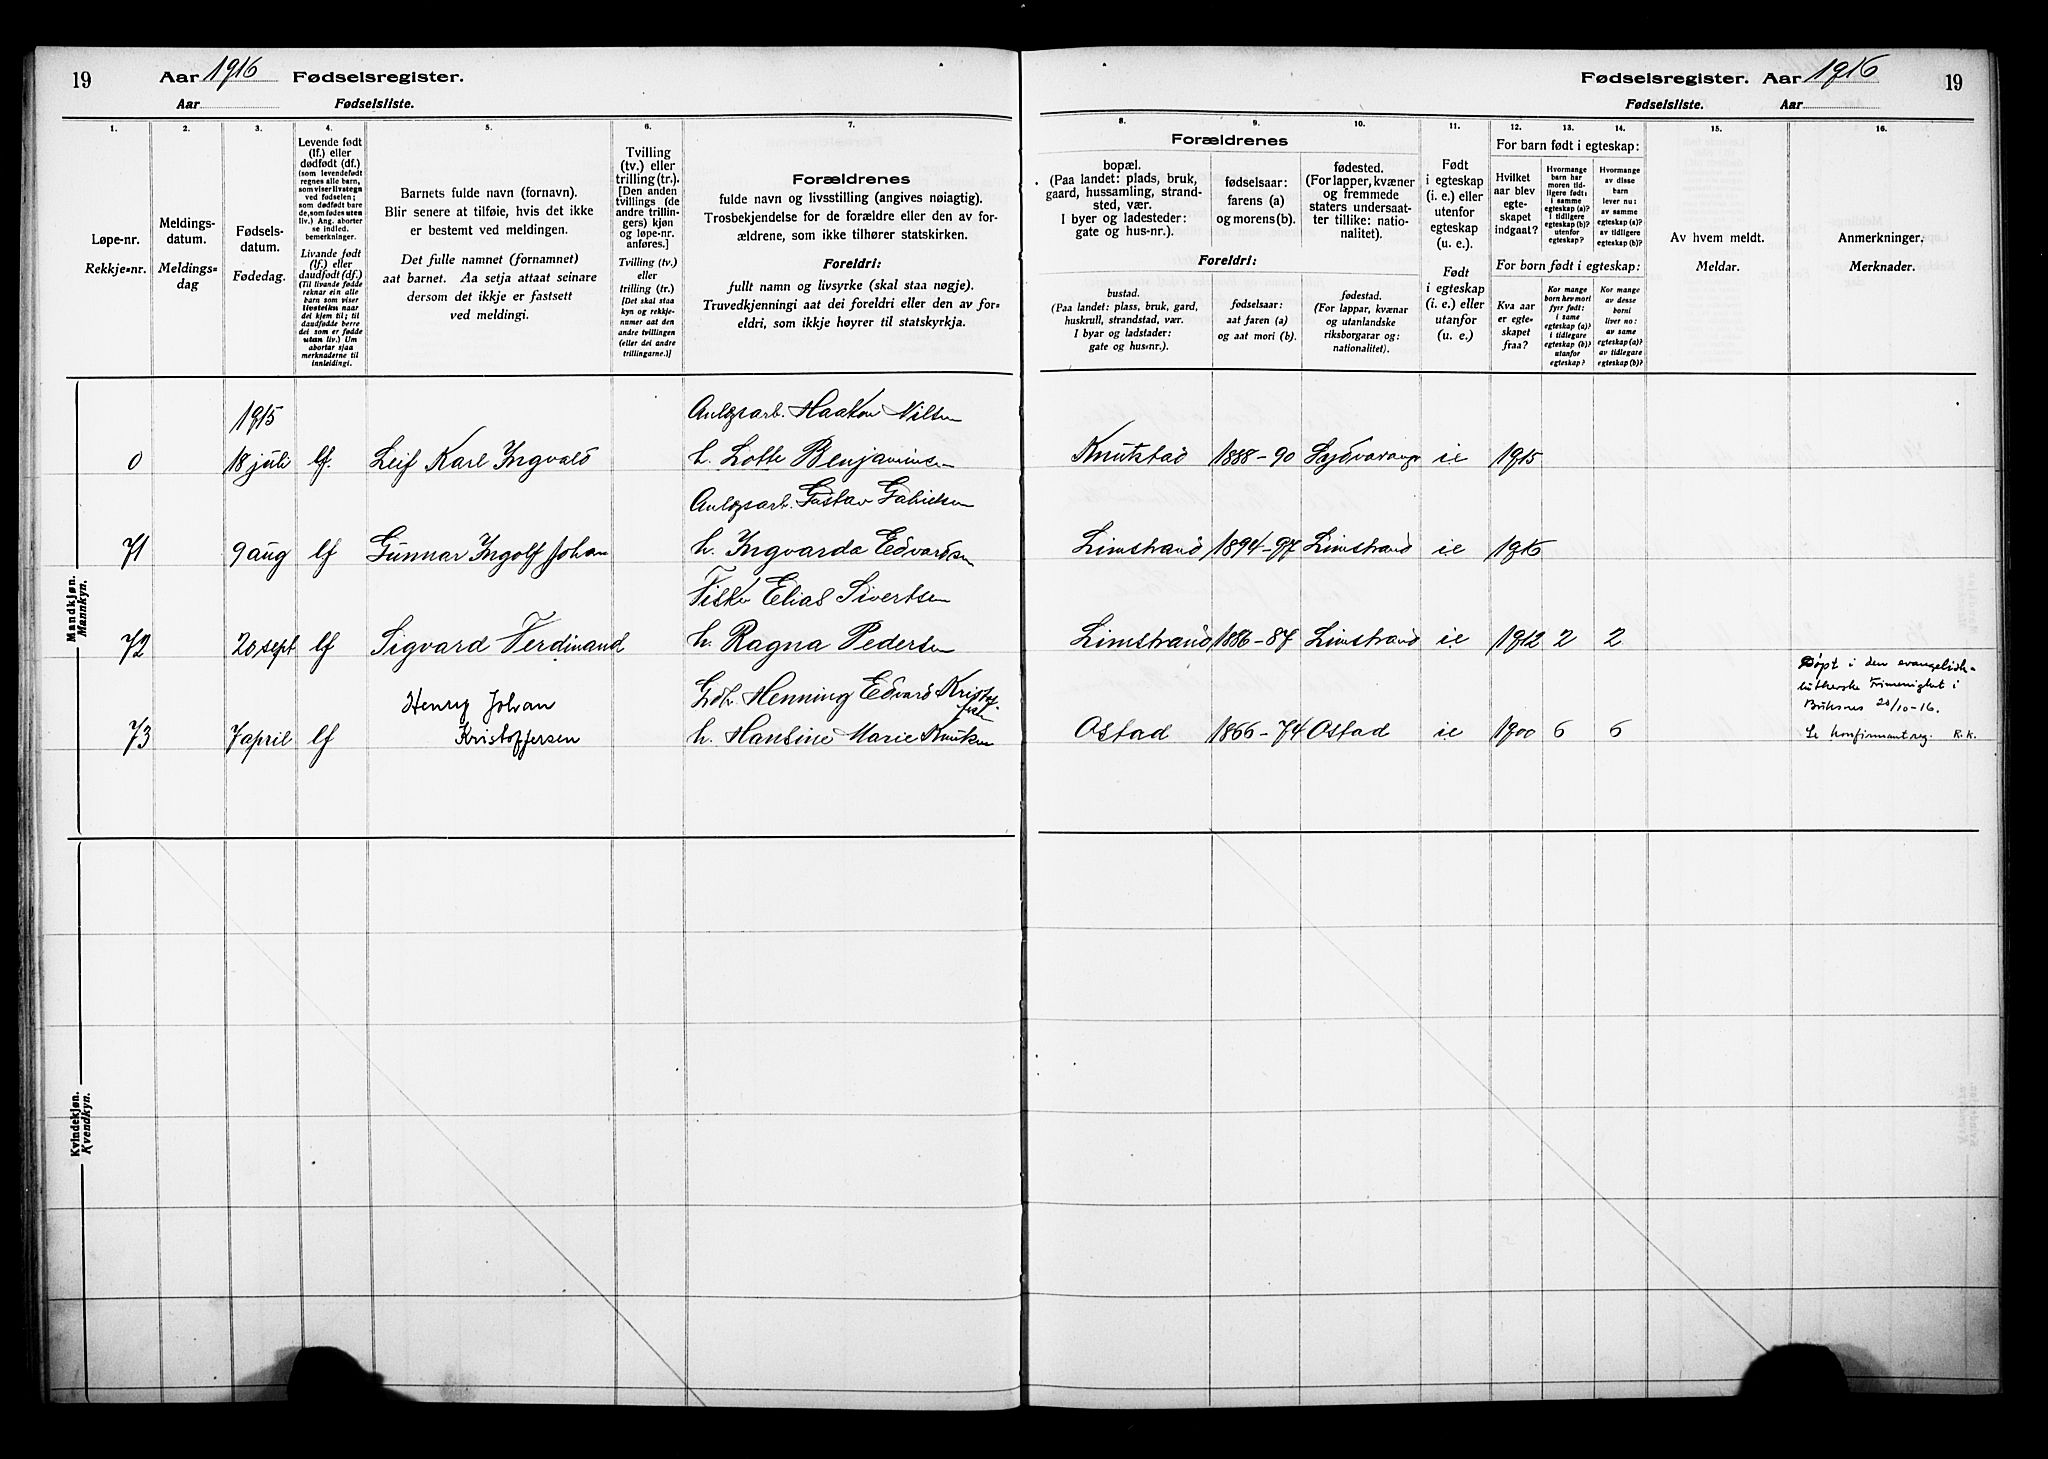 19 Aar 1916 Fødselsregister.
Aar Fødselsliste.
Fødselsregister. Aar 1916 19
Fødselsliste. Aar
1.
Løpe-nr.
Rekkje=nr.
2.
Meldings-
datum.
Meldings=
dag
3.
Fødsels-
datum.
Fødedag.
4.
Levende født
(lf.) eller
dødfødt (df.)
(som levendefødt
regnes alle barn,
som viser livstegn
ved fødselen;
som dødfødt bare
de, som fødes uten
liv.) Ang. aborter
se indled.
bemerkninger.
Livande fødd
(lf.) eller
daudfødt (df.)
(Til livande fødde
reknar ein alle
barn som viser
livsteikn naar
dei kjem til; til
daudfødde berre
dei som er fødde
utan liv.) Um
abortar sjaa
merknaderne til
innleidingi.
5.
Barnets fulde navn (fornavn).
Blir senere at tilføie, hvis det ikke
er bestemt ved meldingen.
Det fulle namnet (fornamnet)
aat barnet. Aa setja attaat seinare
dersom det ikkje er fastsett
ved meldingi.
6.
Tvilling
(tv.) eller
trilling (tr.).
[Den anden
tvillings (de
andre trillin-
gers) kjøn
og løpe-nr.
anføres.]
Tvilling (tv.)
eller
trilling (tr.)
[Det skal staa
kyn og rekkje-
numer aat den
andre tvillingen
(eller dei andre
trillingarne.)]
7.
Forældrenes
fulde navn og livsstilling (angives nøiagtig).
Trosbekjendelse for de forældre eller den av for-
ældrene, som ikke tilhører statskirken.
Foreldri:
fullt namn og livsyrke (skal staa nøgje).
Truvedkjenningi aat dei foreldri eller den av for=
eldri, som ikkje høyrer til statskyrkja.
8.
Forældrenes
bopæl.
(Paa landet: plads, bruk,
gaard, hussamling, strand-
sted, vær.
I byer og ladesteder:
gate og hus-nr.).
Foreldri:
bustad.
(Paa landet: plass, bruk, gard,
huskrull, strandstad, vær.
I byar og ladstader:
gate og hus=nr.).
9.
fødselsaar:
farens (a)
og morens (b).
fødselsaar:
aat faren (a)
og aat mori (b).
10.
fødested.
(For lapper, kvæner
og fremmede
staters undersaat-
ter tillike: natio-
nalitet).
fødestad.
(For lappar, kvænar
og utanlandske
riksborgarar og:
nationalitet).
11.
Født
i egteskap
(i. e.) eller
utenfor
egteskap
(u. e.).
Født
i egteskap
(i. e.) eller
utanfor
(u. e.)
12. 13. 14.
For barn født i egteskap:
Hvilket
aar blev
egte-
skapet
indgaat?
Hvormange
barn har
moren tid-
ligere født:
i samme
egteskap (a)?
i tidligere
egteskap (b)?
utenfor
egteskap?
Hvormange
av disse
barn
lever nu:
av samme
egteskap (a)?
av tidligere
egteskap (b)?
For born født i egteskap:
Kva aar
er egte=
skapet
fraa?
Kor mange
born hev mori
fyrr født:
i same
egteskap (a)?
i tidlegare
egteskap (b)?
utanfor
egteskap?
Kor mange
av desse
borni
liver no:
av same
egteskap (a)?
av tidlegare
egteskap (b)?
15.
Av hvem meldt.
Meldar.
16.
Anmerkninger.
Merknader.
Mandkjøn.
Mannkyn.
1915
Anlægsarb. Haakon Nilsen
0 18 juli lf. Leif Karl Ingvald h. Lotte Benjaminsen Knutstad 1888-90 Sydvaranger ie 1915
Anlægsarb. Gustav Gabrielsen
71 9 aug lf Gunnar Ingolf Johan h. Ingvarda Edvardsen Limstrand 1894-97 Limstrand ie 1916
Fisker Elias Sivertsen
72 20 sept lf Sigvard Ferdinand h. Ragna Pedersen Limstrand 1886-87 Limstrand ie 1912 2 2
Henry Johan Gdbr. Henning Edvard Kristoffersen
Døpt i den evangelisk-
lutherske Frimenighet i
Buksnes 20/10-16.
73 7 april lf Kristoffersen h. Hansine Marie Knutsen Ostad 1866-74 Ostad ie 1900 6 6 Se konfirmantreg. R.K.
Kvindekjøn.
Kvendkyn.